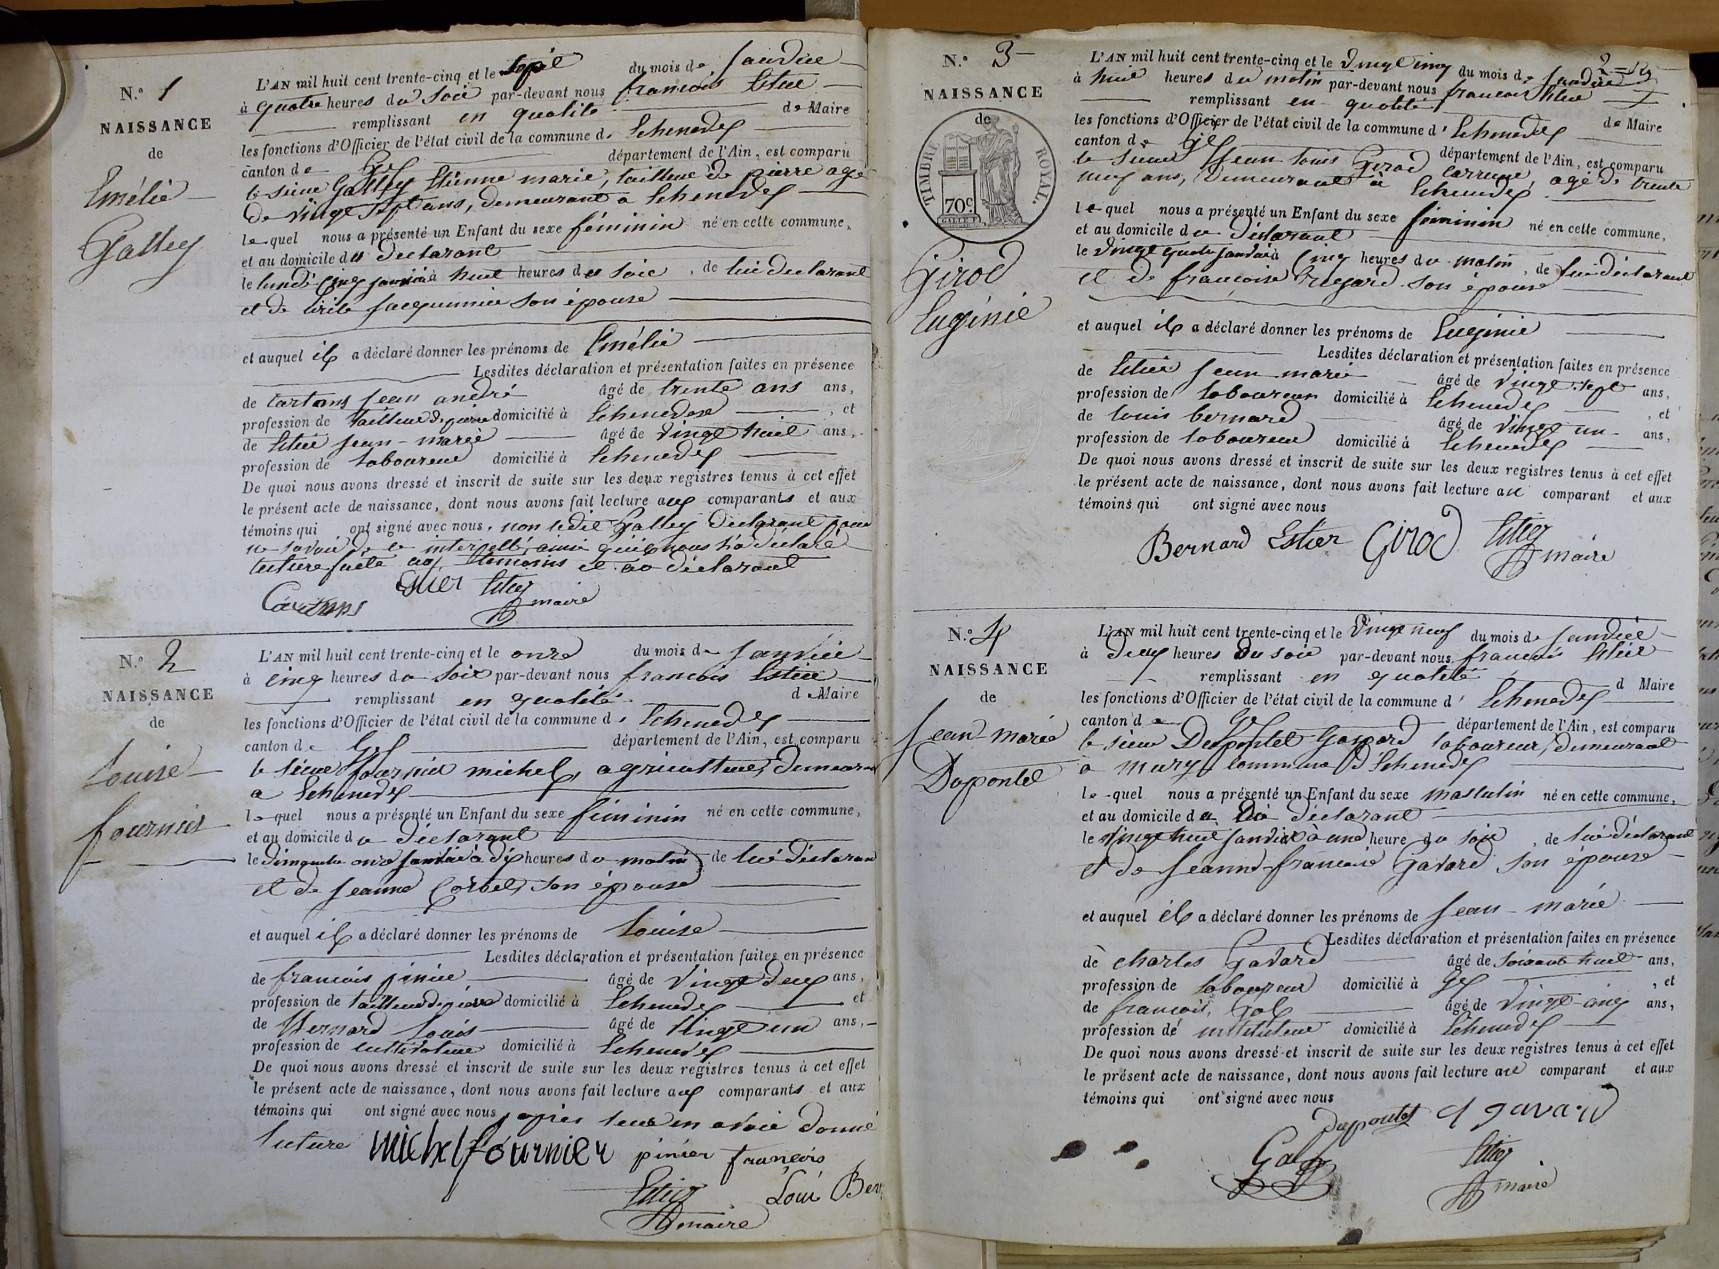 N.° 1
NAISSANCE
de
Emélie
Galley
L'AN mil huit cent trente-cinq et le sept du mois de Janvier
à quatre heures du soir par-devant nous françois Estier
remplissant en qualité de Maire
les fonctions d'Officier de l'état civil de la commune d' Echenevex
canton de Gex département de l'Ain, est comparu
le sieur Galley Etienne marie, tailleur de pierre agé
de vingt sept ans, demeurant a Echenevex
lequel nous a présenté un Enfant du sexe féminin né en cette commune,
et au domicile du déclarant
le lundi cinq janvier à huit heures du soir, de lui déclarant
et de son épouse
et auquel il a déclaré donner les prénoms de Emélie
Lesdites déclaration et présentation faites en présence
de cartans jean andré âgé de trente ans ans,
profession de tailleur de pierre domicilié à Echenevex, et
de Estier jean-marie âgé de vingt huit ans,
profession de laboureur domicilié à Echenevex
De quoi nous avons dressé et inscrit de suite sur les deux registres tenus à cet effet
le présent acte de naissance, dont nous avons fait lecture aux comparants et aux
témoins qui ont signé avec nous, non ledit Galley déclarant pour
ne savoir, de ce interpellé, ainsi qu'il nous l'a déclaré
lecture faite aux témoins et au déclarant
Cartans Estier Estier
maire
N.° 2
NAISSANCE
de
Louise
fournier
L'AN mil huit cent trente-cinq et le onze du mois de Janvier
à cinq heures du soir par-devant nous francois Estier
remplissant en qualité de Maire
les fonctions d'Officier de l'état civil de la commune d' Echenevex
canton de Gex département de l'Ain, est comparu
le sieur fournier michel, agriculteur, demeurant
a Echenevex
lequel nous a présenté un Enfant du sexe féminin né en cette commune,
et au domicile du déclarant
le dimanche onze janvier à dix heures du matin de lui déclarant
et de jeanne Corbet, son épouse
et auquel il a déclaré donner les prénoms de Louise
Lesdites déclaration et présentation faites en présence
de francois pinier âgé de vingt deux ans,
profession de tailleur de pierre domicilié à Echenevex et
de Bernard Louis âgé de vingt un ans,
profession de cultivateur domicilié à Echenevex
De quoi nous avons dressé et inscrit de suite sur les deux registres tenus à cet effet
le présent acte de naissance, dont nous avons fait lecture aux comparants et aux
témoins qui ont signé avec nous après leur en avoir donné
lecture michel fournier pinier françois
Estier Loui Ber
maire
2
N.° 3
NAISSANCE
de
TIMBRE ROYAL.
70 c.
Girod
Eugénie
L'AN mil huit cent trente-cinq et le vingt cinq du mois de Janvier
à huit heures du matin par-devant nous francois Estier
remplissant en qualité de Maire
les fonctions d'Officier de l'état civil de la commune d' Echenevex
canton de gex département de l'Ain, est comparu
le sieur jean louis Girod agé de trente
neuf ans, demeurant à Echenevex
lequel nous a présenté un Enfant du sexe féminin né en cette commune,
et au domicile du déclarant
le vingt quatre janvier à cinq heures du matin, de lui déclarant
et de françoise son épouse
et auquel il a déclaré donner les prénoms de Eugénie
Lesdites déclaration et présentation faites en présence
de Estier jean marie âgé de vingt sept ans,
profession de laboureur domicilié à Echenevex, et
de louis bernard âgé de vingt un ans,
profession de laboureur domicilié à Echenevex
De quoi nous avons dressé et inscrit de suite sur les deux registres tenus à cet effet
le présent acte de naissance, dont nous avons fait lecture au comparant et aux
témoins qui ont signé avec nous
Bernard Estier Girod Estier
maire
N.° 4
NAISSANCE
de
Jean marie
Dupontet
L'AN mil huit cent trente-cinq et le vingt neuf du mois de Janvier
à deux heures du soir par-devant nous francois Estier
remplissant en qualité d Maire
les fonctions d'Officier de l'état civil de la commune d' Echenevex
canton de Gex département de l'Ain, est comparu
le sieur Dupontet Gaspard laboureur, demeurant
a mury commune d'Echenevex
lequel nous a présenté un Enfant du sexe masculin né en cette commune,
et au domicile du déclarant
le vingt huit janvier à une heure du soir, de lui déclarant
et de jeanne-francoise Gavard son épouse
et auquel il a déclaré donner les prénoms de Jean-marie
Lesdites déclaration et présentation faites en présence
de charles Gavard âgé de soixante huit ans,
profession de laboureur domicilié à gex, et
de francois Gal âgé de vingt cinq ans,
profession de instituteur domicilié à Echenevex
De quoi nous avons dressé et inscrit de suite sur les deux registres tenus à cet effet
le présent acte de naissance, dont nous avons fait lecture au comparant et aux
témoins qui ont signé avec nous
Dupontet C gavard
Gal Estier
maire